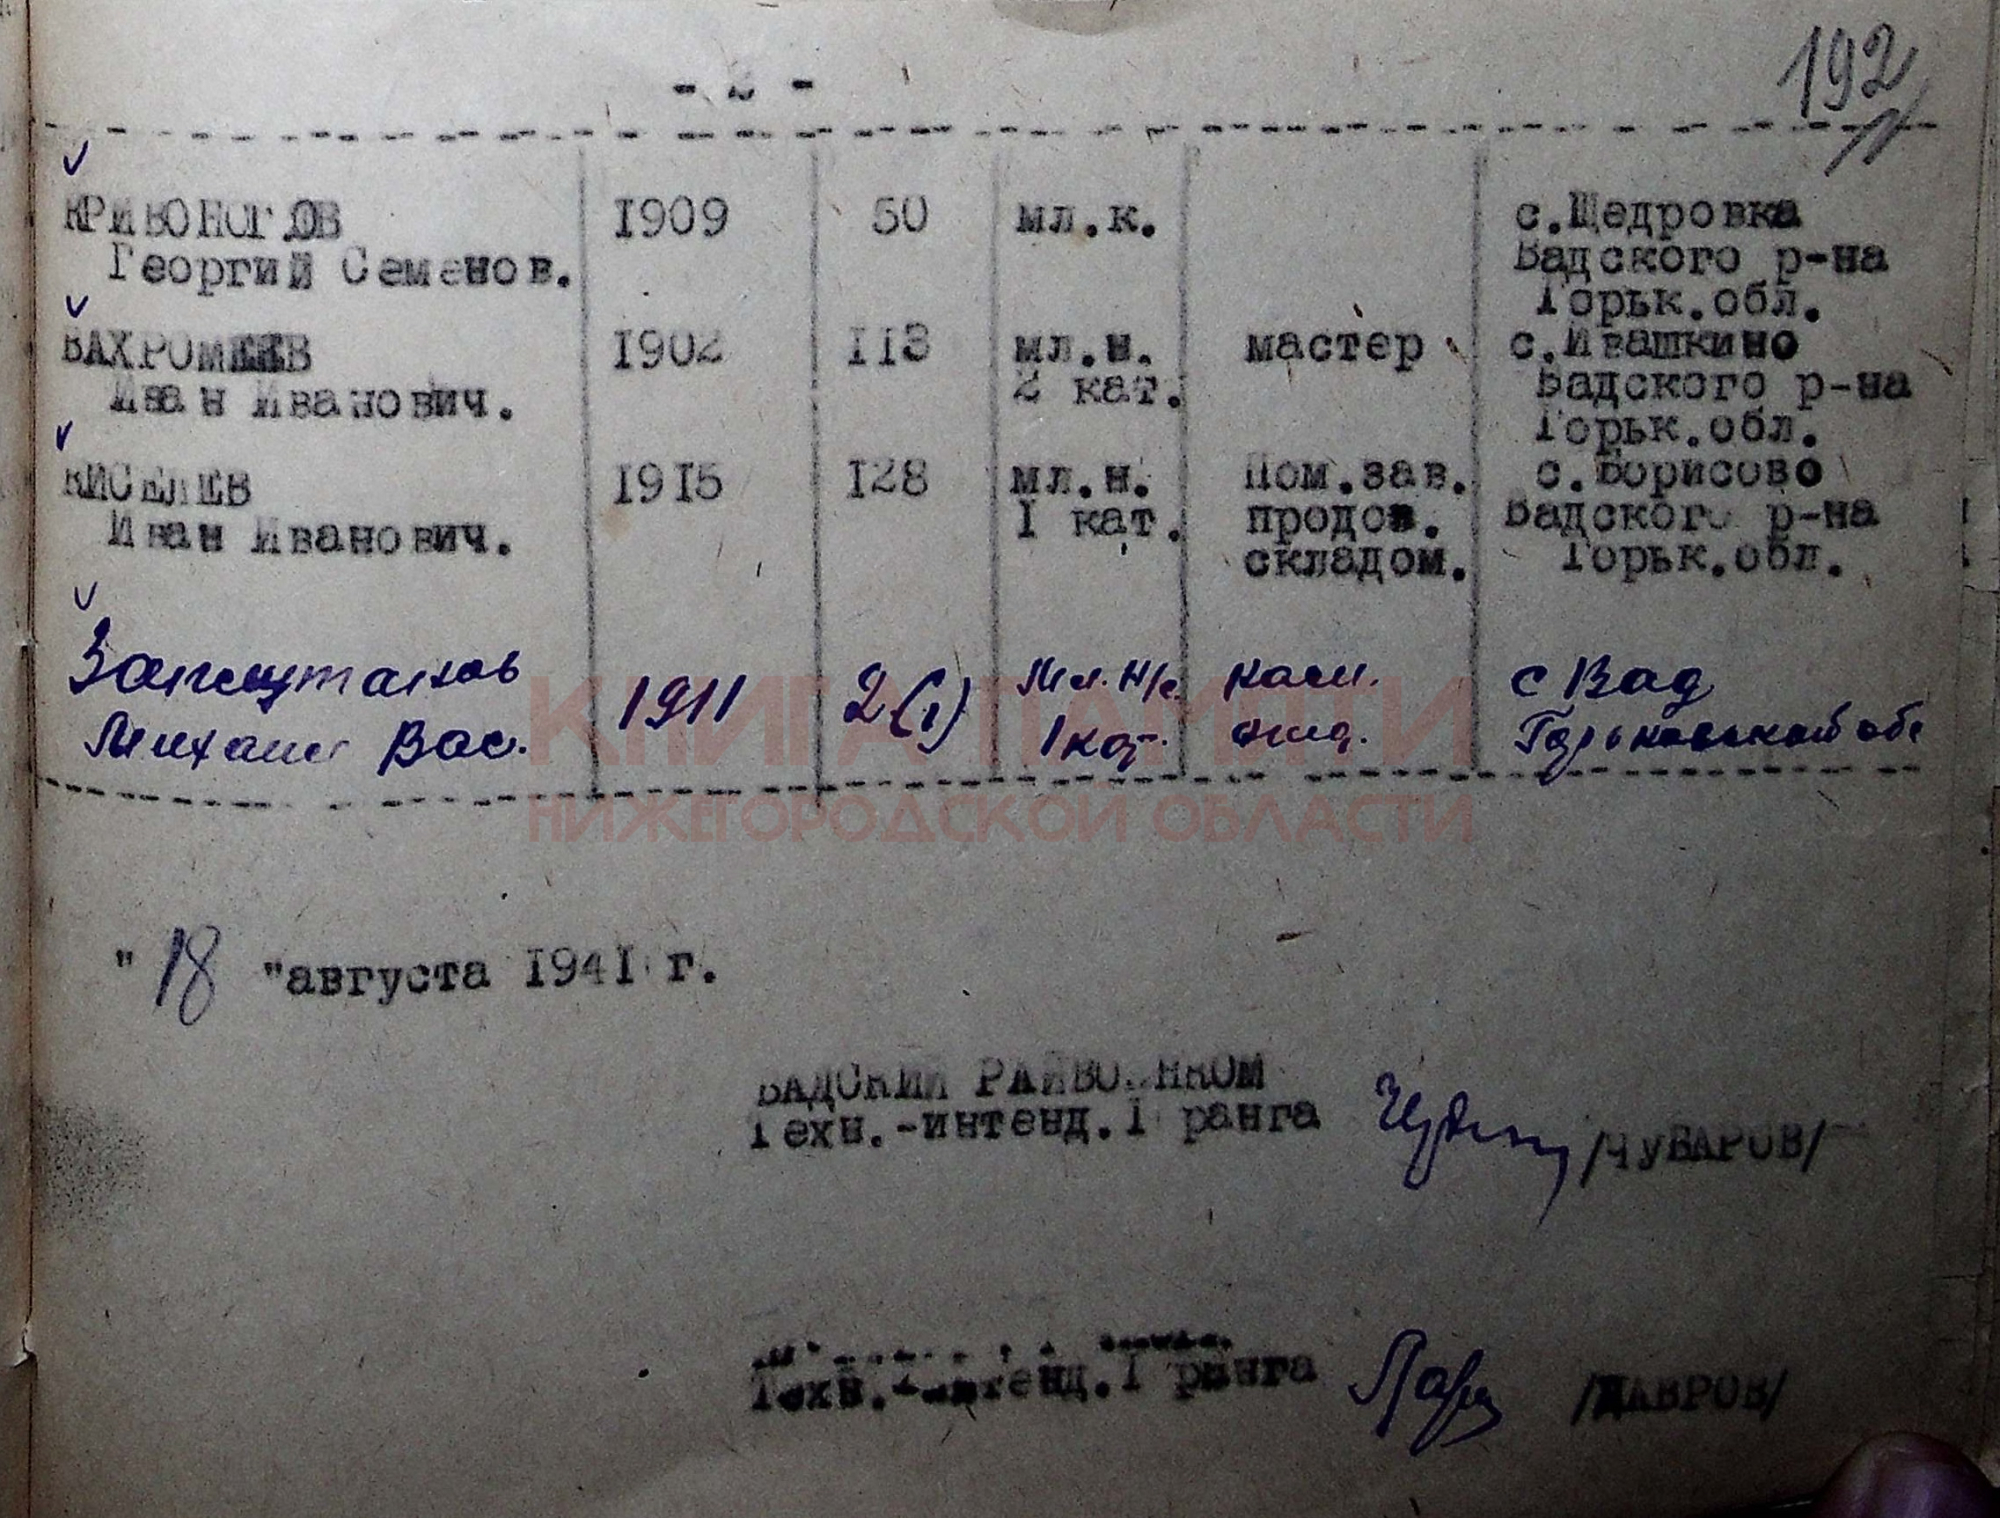 192
- 2 -
КРИВОНОГОВ 1909 50 мл.к. с.Щедровка
Георгий Семенов. Вадского р-на
Горьк.обл.
ВАХРОМЕЕВ 1902 113 мл.н. мастер с.Ивашкино
Иван Иванович. 2 кат. Вадского р-на
Горьк.обл.
КИСЕЛЕВ 1915 128 мл.н. Пом.зав. с.Борисово
Иван Иванович. I кат. продов. Вадского р-на
складом. Горьк.обл.
1911 2(1) Мл. Н/с. с Вад
Михаил Вас. 1 кат. Горьковской обл
КНИГА ПАМЯТИ
НИЖЕГОРОДСКОЙ ОБЛАСТИ
"18 "августа 1941 г.
ВАДСКИЙ РАЙВОЕНКОМ
Техн.-интенд.I ранга /ЧУВАРОВ/
Техн.-интенд.I ранга /ЛАВРОВ/